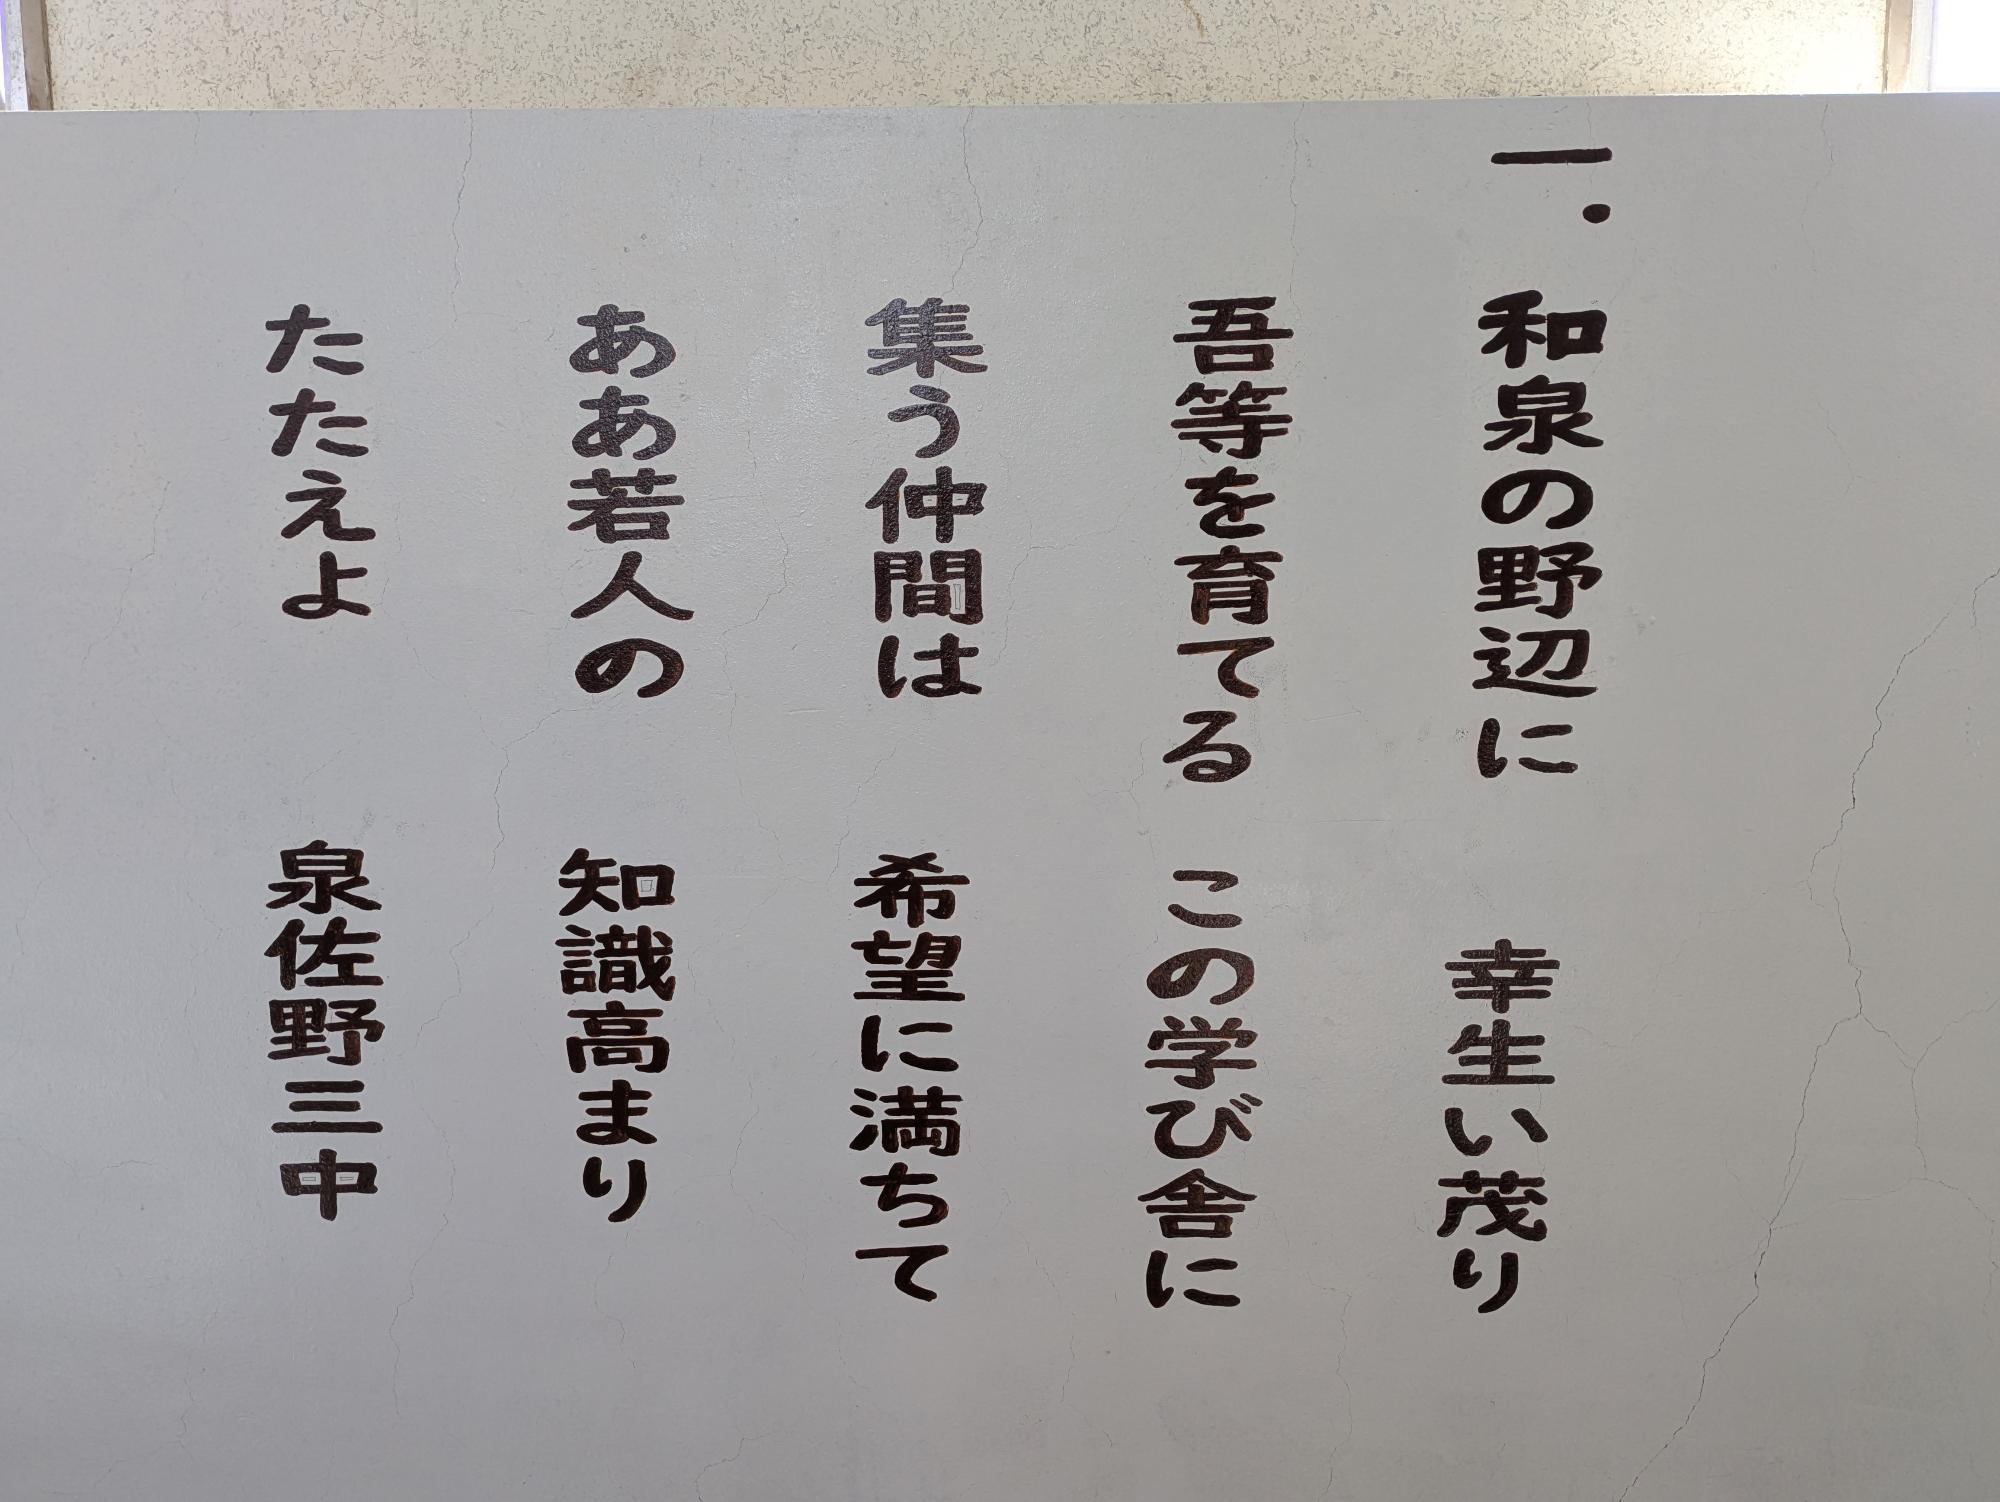 一. 和泉の野辺に 幸生い茂り
吾等を育てる この学び舎に
集う仲間は 希望に満ちて
ああ若人の 知識高まり
たたえよ 泉佐野三中